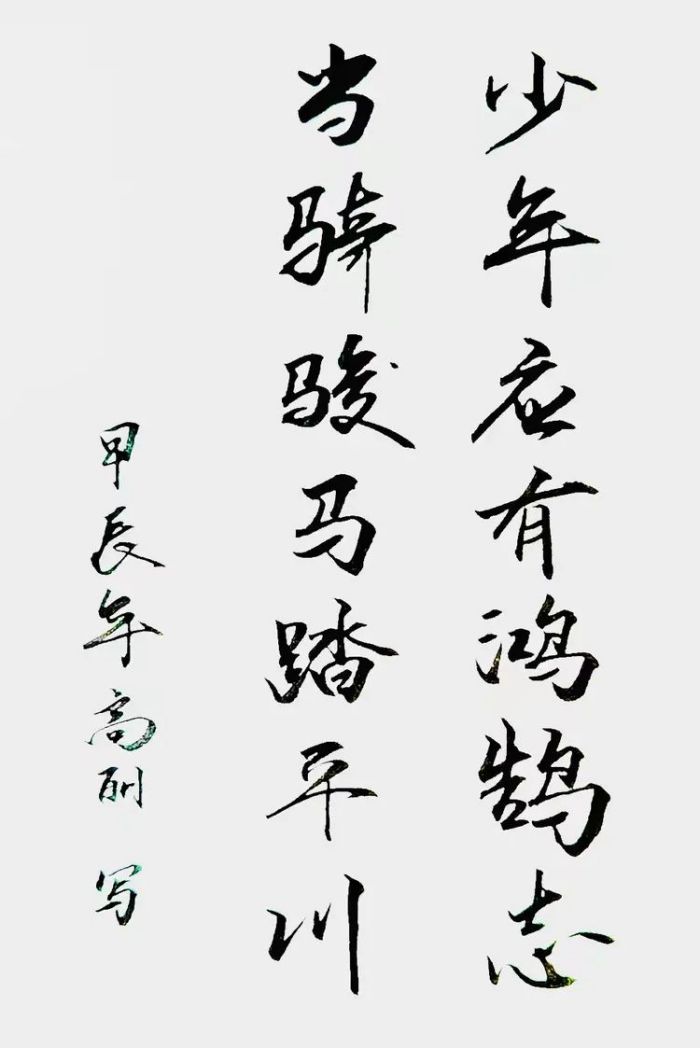 少年应有鸿鹄志
当骑骏马踏平川
甲辰年高丽写